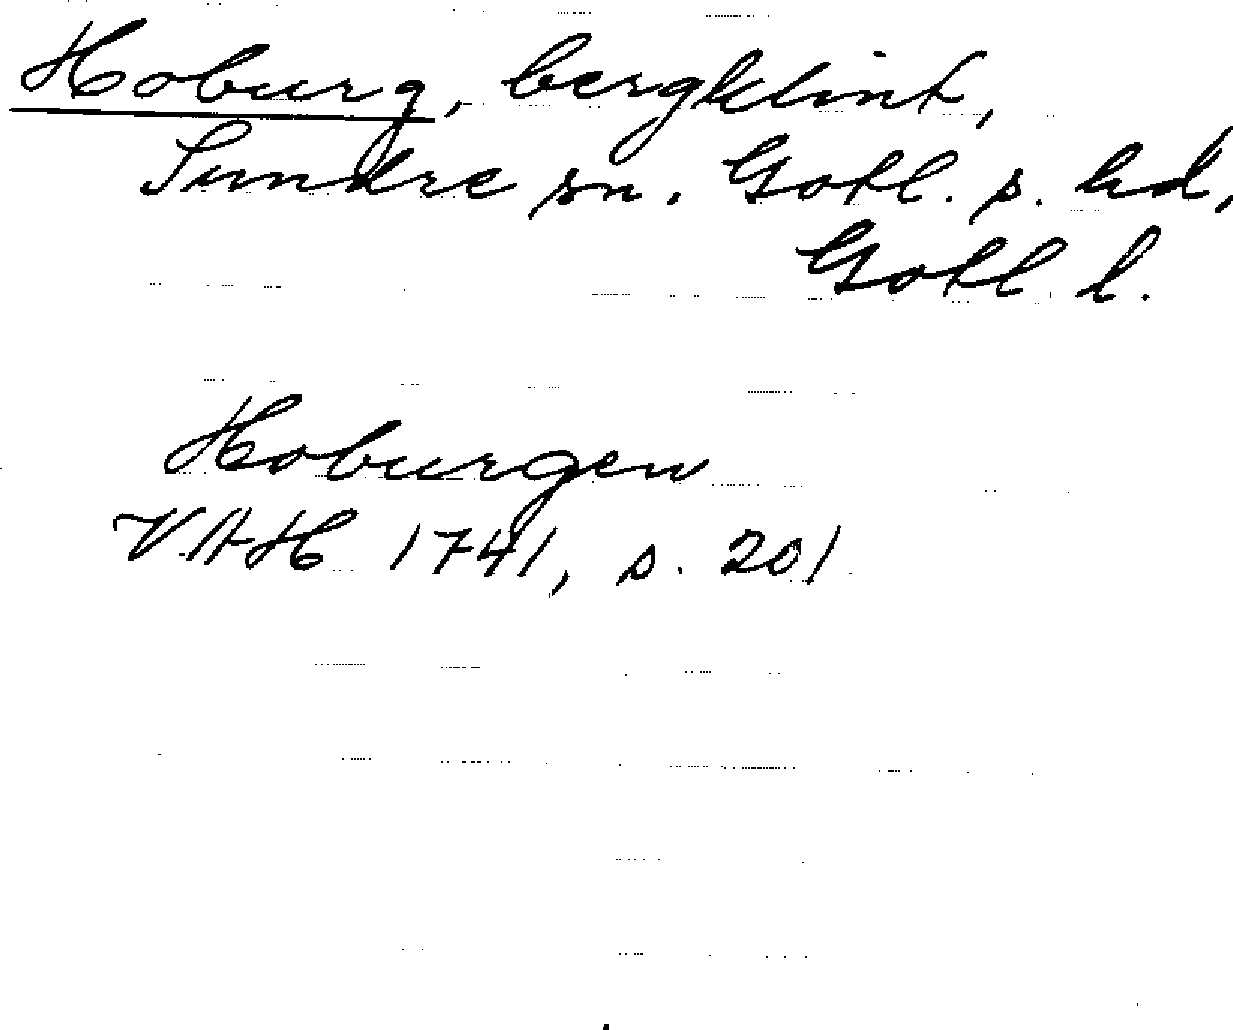 Hoburg, bergklint,
Sundre sn. Gotl. s. hd,
Gotl. l.
Hoburgen
VAH 1741, s. 201